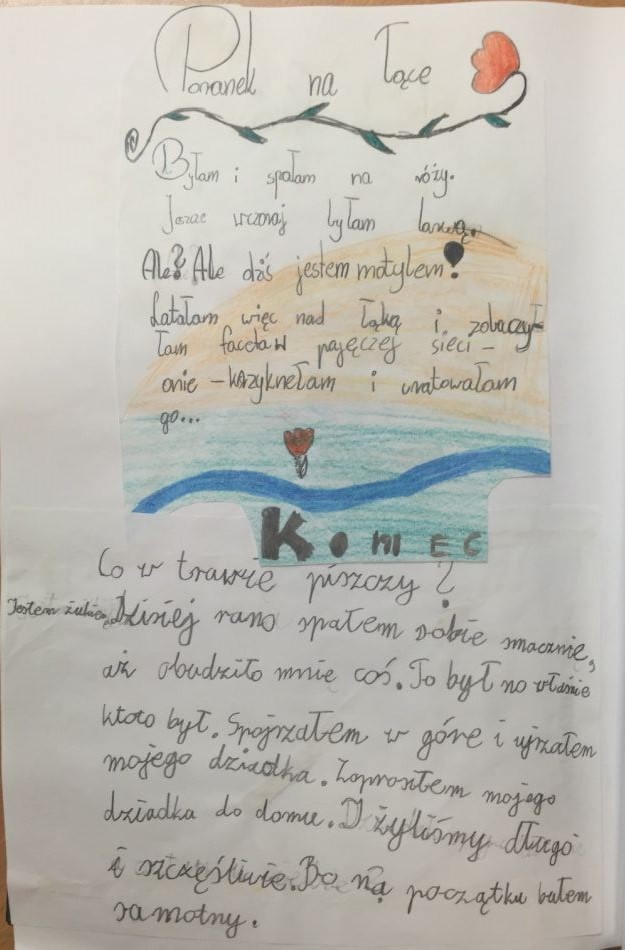 Poranek na łące
Byłam i spałam na róży.
Jeszcze wczoraj byłam larwą.
Ale? Ale dziś jestem motylem!
Latałam więc nad łąką i zobaczył-
łam faceta w pajęczej sieci -
onie - krzyknełam i uratowałam
go...
KONIEC
Co w trawie piszczy?
Jestem żukiem. Dzisiej rano spałem sobie smacznie,
aż obudziło mnie coś. To był no właśnie
ktoto był. Spojrzałem w góre i ujrzałem
mojego dziadka. Zaprosiłem mojego
dziadka do domu. I żyliśmy długo
i szczęśliwie. Bo na początku bałem
samotny.